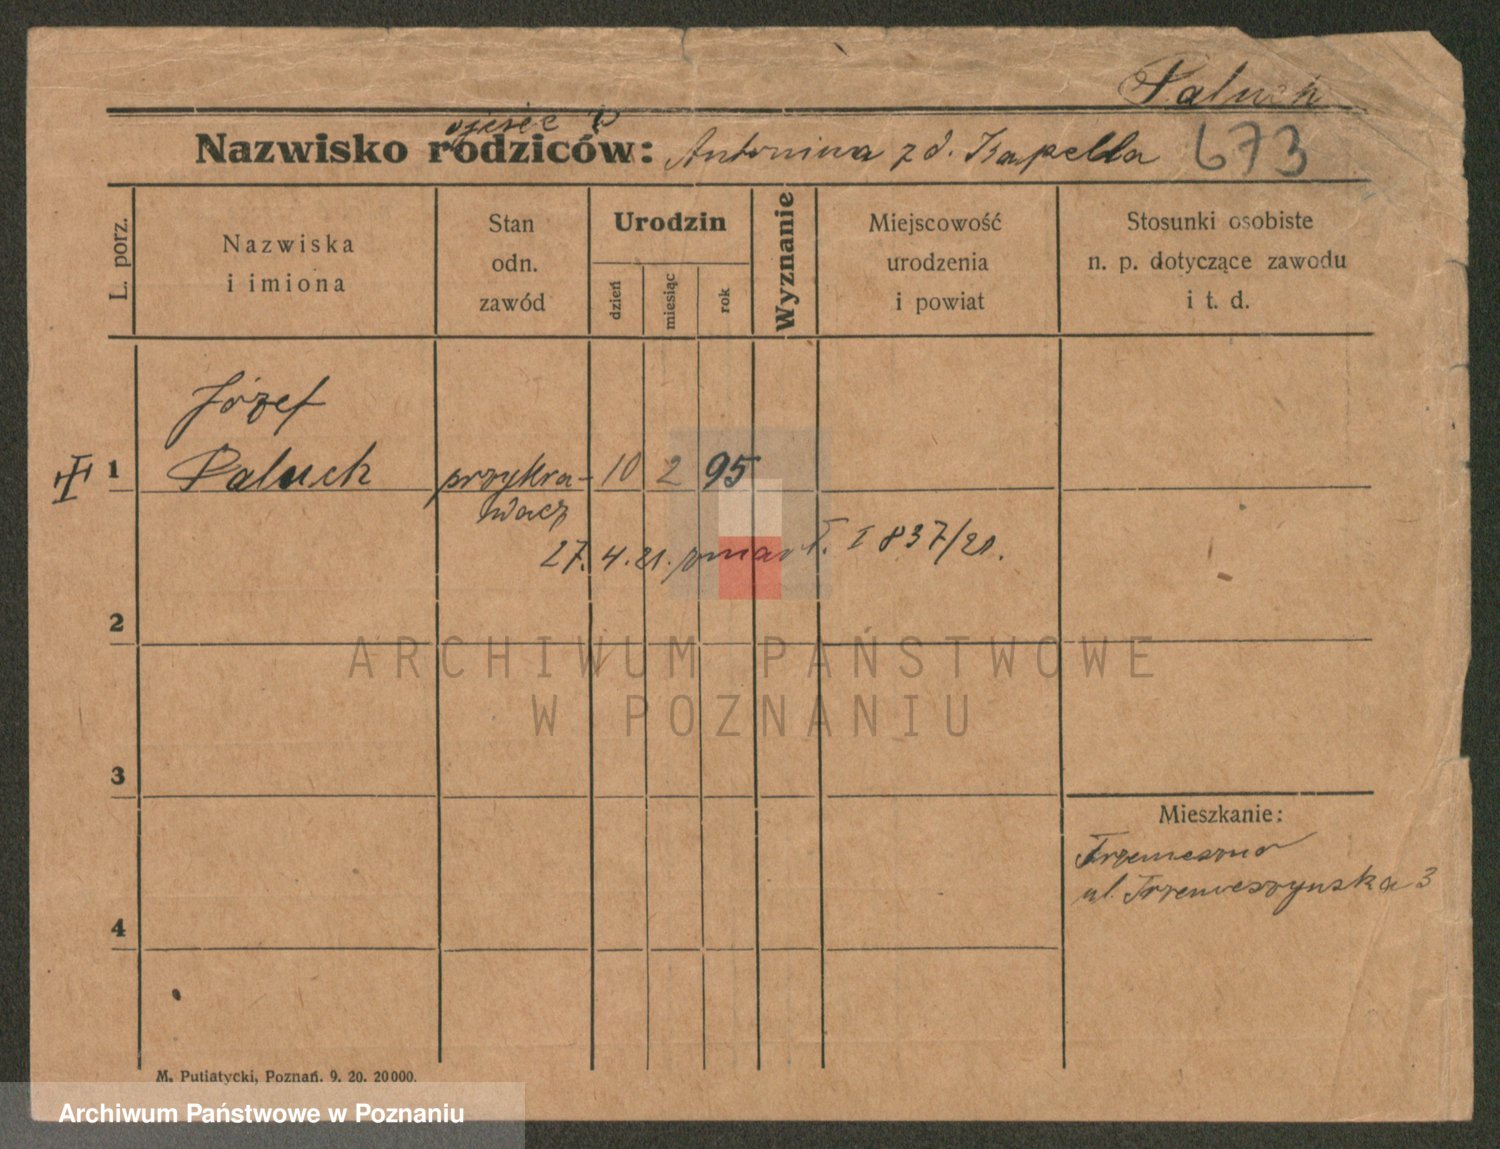 Paluch
ojciec
Nazwisko rodziców: Antonina z d. Kapella 673
L. porz.
Nazwiska
i imiona
Stan
odn.
zawód
Urodzin
dzień
miesiąc
rok
Wyznanie
Miejscowość
urodzenia
i powiat
Stosunki osobiste
n. p. dotyczące zawodu
i t. d.
Józef
1 Paluch przykra- 10 2 95
wacz
27.4.21. zmarł. I 837/21.
2
3
4
Mieszkanie:
Trzemeszno
ul. Trzemeszyńska 3
M. Putiatycki, Poznań. 9. 20. 20000.
ARCHIWUM PAŃSTWOWE
W POZNANIU
Archiwum Państwowe w Poznaniu